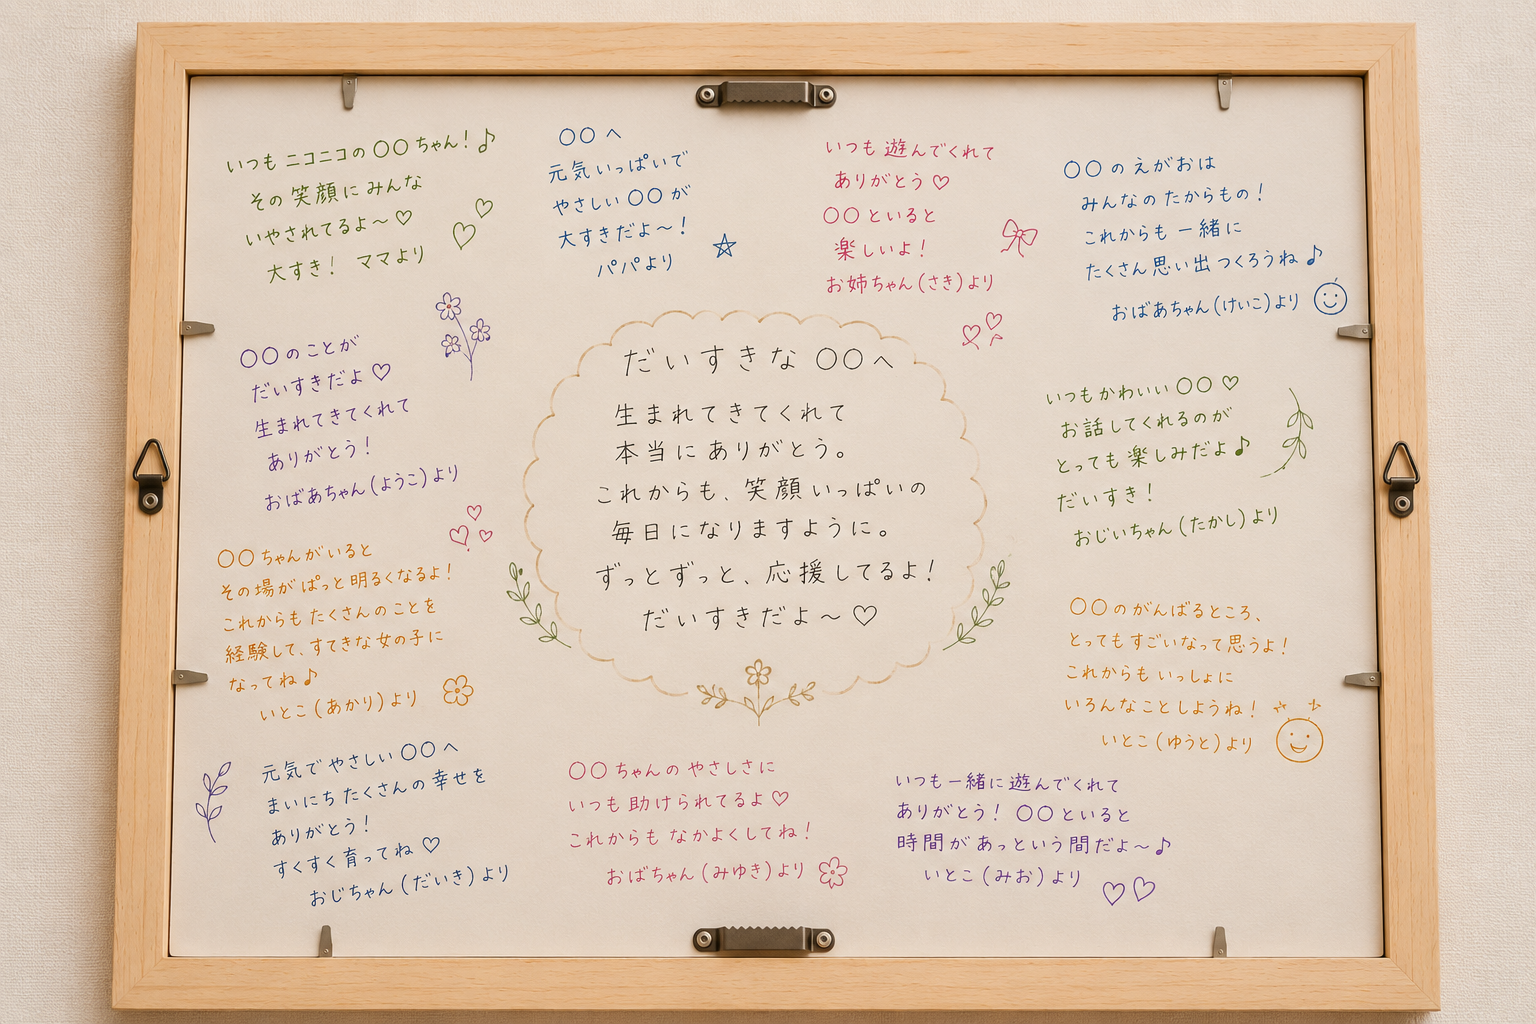 いつも ニコニコの 〇〇ちゃん！♪
その 笑顔に みんな
いやされてるよ〜♡
大すき！ ママより
〇〇へ
元気いっぱいで
やさしい 〇〇が
大すきだよ〜！
パパより
いつも 遊んでくれて
ありがとう♡
〇〇といると
楽しいよ！
お姉ちゃん(さき)より
〇〇の えがおは
みんなの たからもの！
これからも 一緒に
たくさん思い出つくろうね♪
おばあちゃん(けいこ)より
〇〇のことが
だいすきだよ♡
生まれてきてくれて
ありがとう！
おばあちゃん(ようこ)より
だいすきな 〇〇へ
生まれてきてくれて
本当に ありがとう。
これからも、笑顔いっぱいの
毎日になりますように。
ずっとずっと、応援してるよ！
だいすきだよ〜♡
いつもかわいい 〇〇♡
お話してくれるのが
とっても 楽しみだよ♪
だいすき！
おじいちゃん(たかし)より
〇〇ちゃんがいると
その場が ぱっと明るくなるよ！
これからも たくさんのことを
経験して、すてきな女の子に
なってね♪
いとこ(あかり)より
〇〇の がんばるところ、
とっても すごいなって思うよ！
これからも いっしょに
いろんなことしようね！
いとこ(ゆうと)より
元気で やさしい 〇〇へ
まいにち たくさんの 幸せを
ありがとう！
すくすく育ってね♡
おじちゃん(だいき)より
〇〇ちゃんの やさしさに
いつも 助けられてるよ♡
これからも なかよくしてね！
おばちゃん(みゆき)より
いつも一緒に 遊んでくれて
ありがとう！ 〇〇といると
時間が あっという間だよ〜♪
いとこ(みお)より